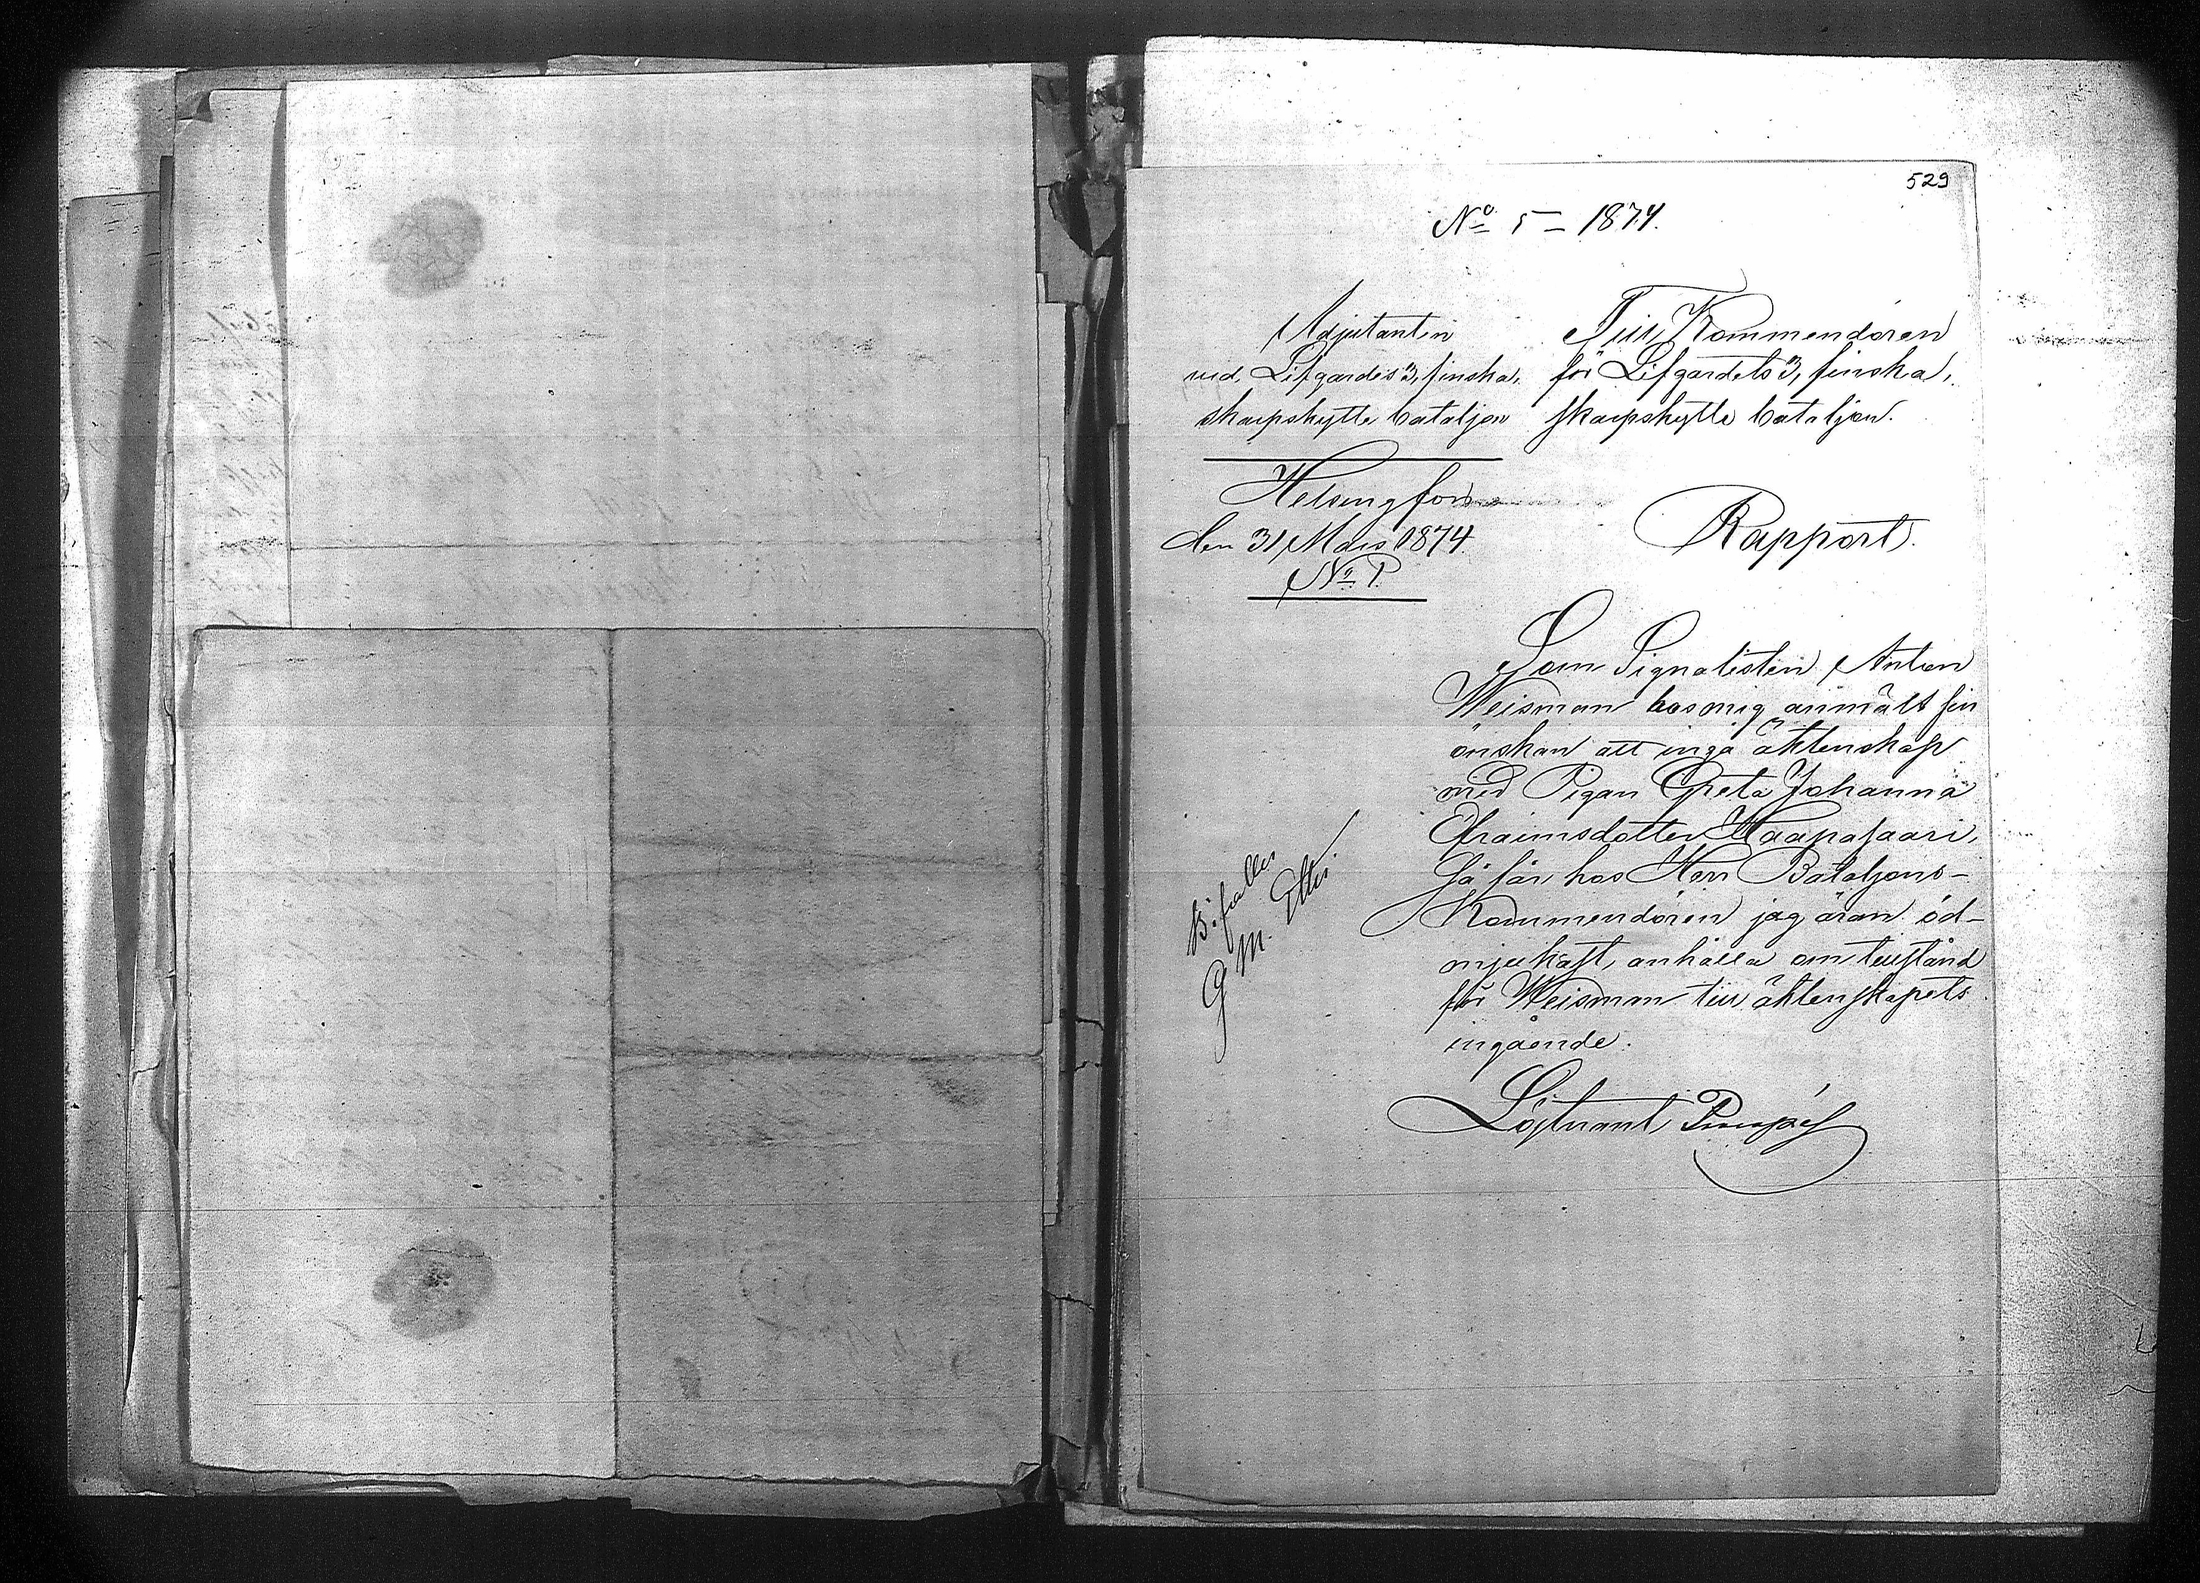 529
No 5 — 1874.
Adjutanten
vid Lifgardes 3, finska,
skarpskytte bataljon
Helsingfors
den 31 Mars 1874.
No
Till Kommendören
för Lifgardets 3, finska,
skarpskytte bataljon.
Rapport.
Som Signalisten Anton
Weisman hos mig anmält sin
önskan att ingå äktenskap
med Pigan Greta Johanna
Efraimsdotter Haapasaari,
så får hos Herr Bataljons-
Kommendören jag äran öd-
mjukast, anhålla om tillstånd
för Weisman till äktenskapets
ingående.
Löjtnant
Bifalles
G M.